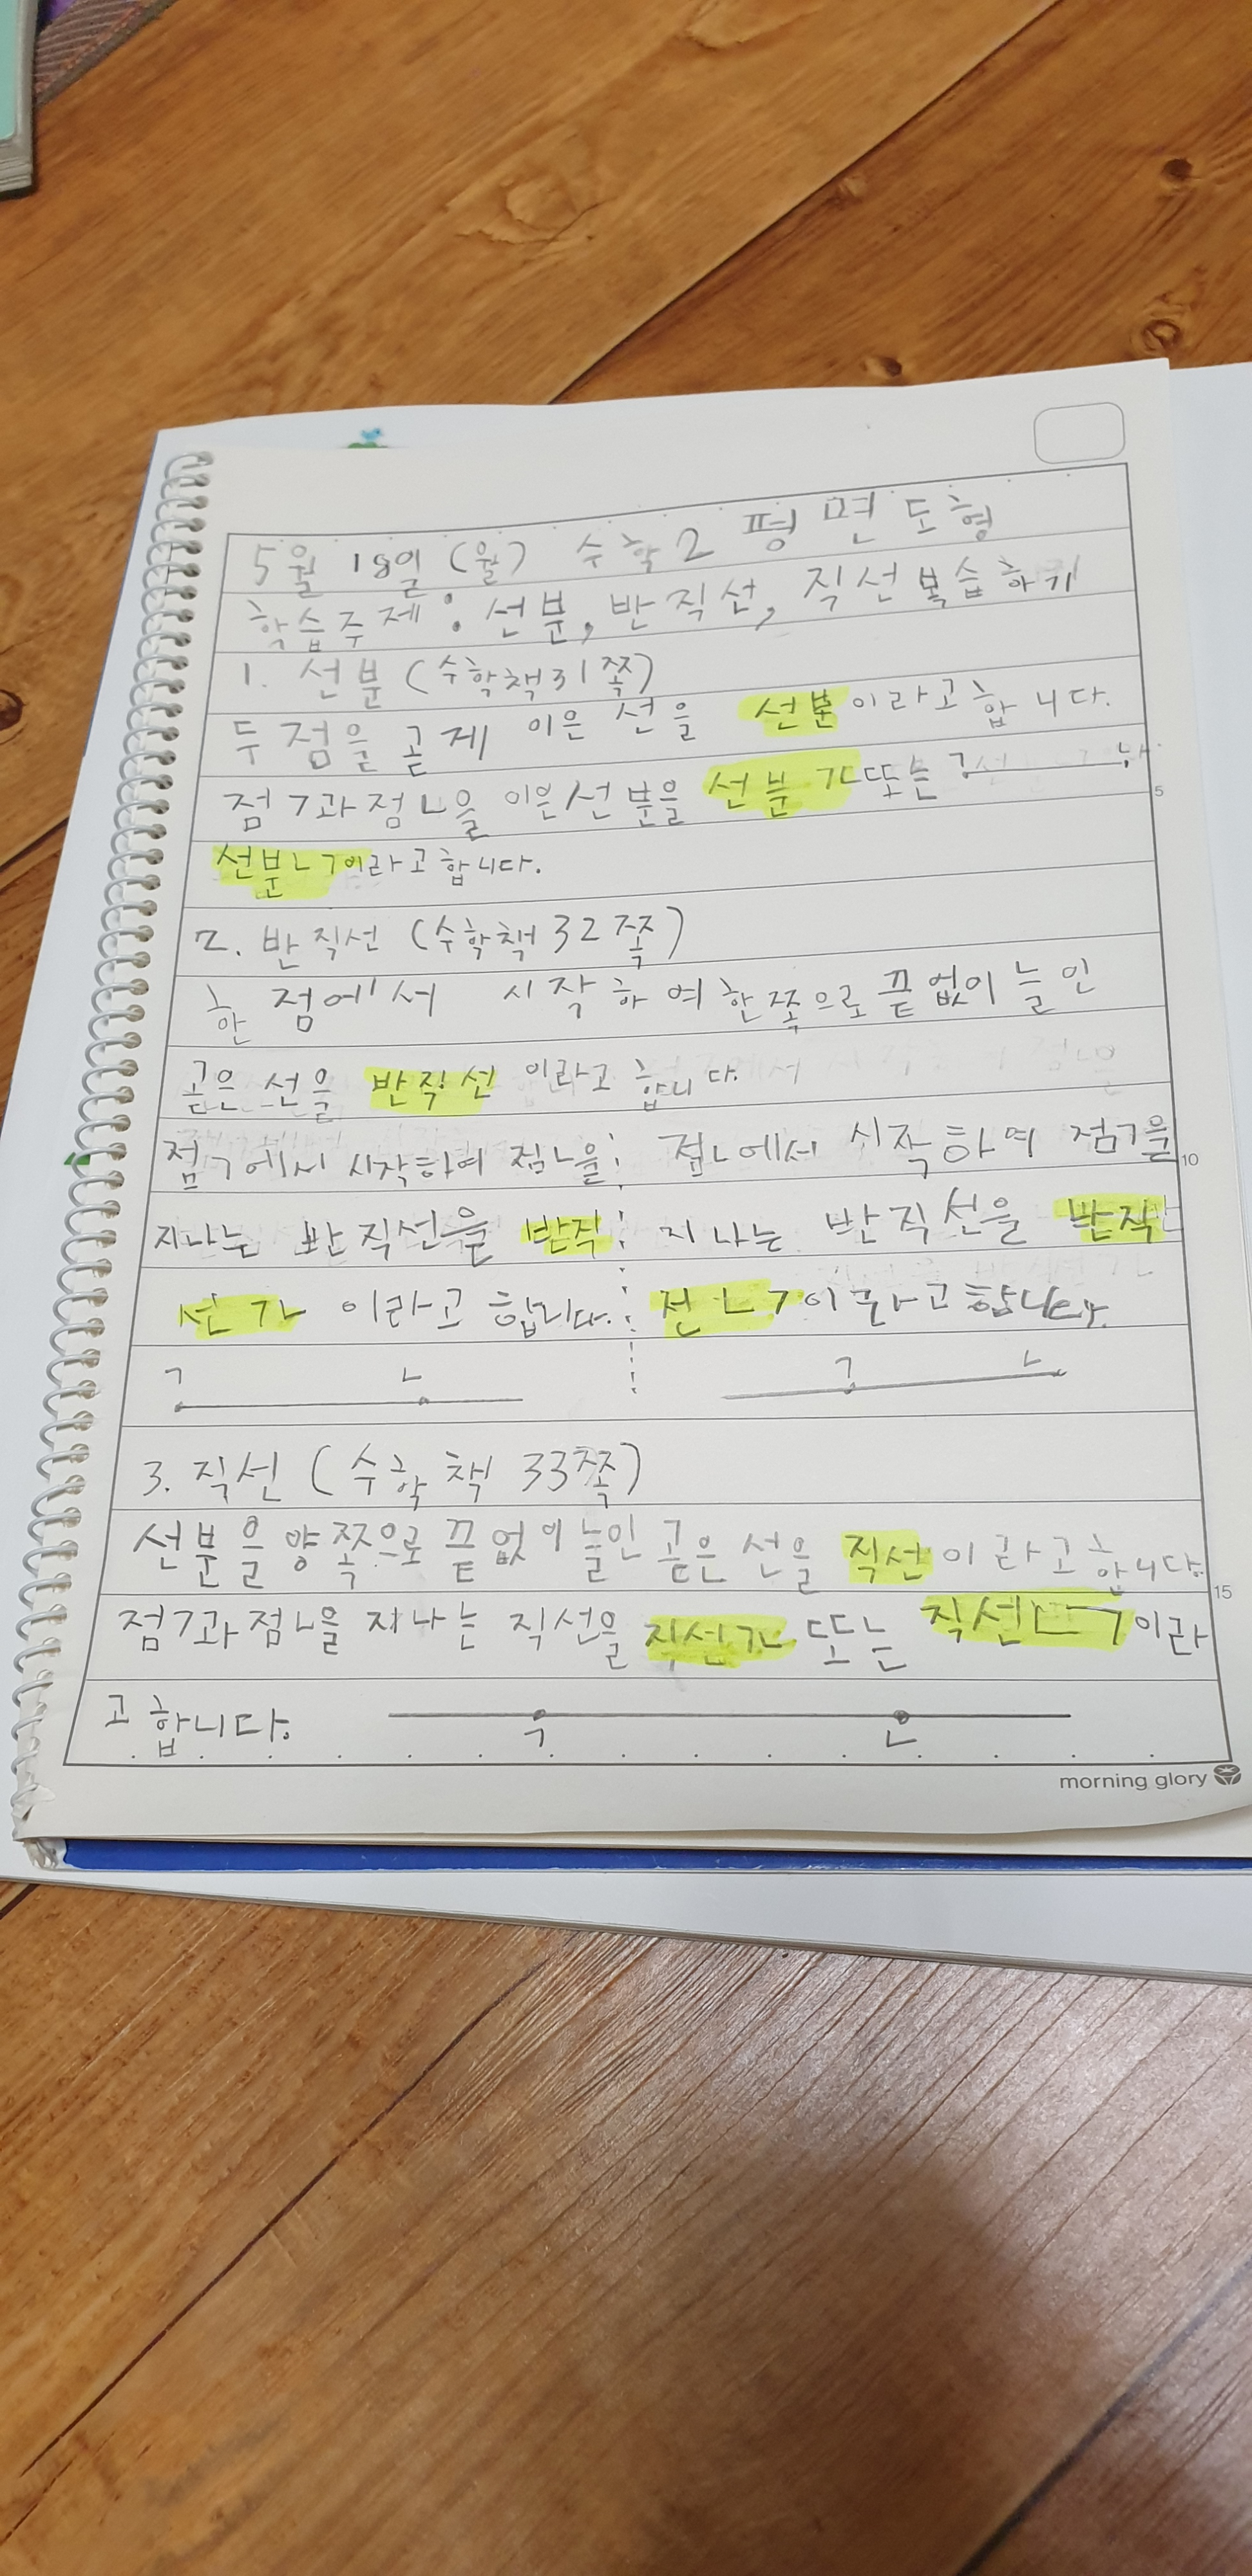 5월 18일 (월) 수학 2 평면도형
학습주제: 선분, 반직선, 직선 복습하기
1. 선분 (수학책 31쪽)
두 점을 곧게 이은 선을 선분이라고 합니다.
점ㄱ과 점ㄴ을 이은 선분을 선분 ㄱㄴ 또는 ㄱ ㄴ
5
선분ㄴㄱ이라고 합니다.
2. 반직선 (수학책 32쪽)
한 점에서 시작하여 한쪽으로 끝없이 늘인
곧은 선을 반직선 이라고 합니다.
점ㄱ에서 시작하여 점ㄴ을 점ㄴ에서 시작하여 점ㄱ을
10
지나는 반직선을 반직 지나는 반직선을 반직
선 ㄱㄴ 이라고 합니다. 선 ㄴㄱ이라고 합니다.
ㄱ ㄴ ㄱ ㄴ
3. 직선 (수학책 33쪽)
선분을 양쪽으로 끝없이 늘인 곧은 선을 직선이라고 합니다.
15
점ㄱ과 점ㄴ을 지나는 직선을 직선ㄱㄴ 또는 직선ㄴㄱ이라
고 합니다. ㄱ ㄴ
morning glory